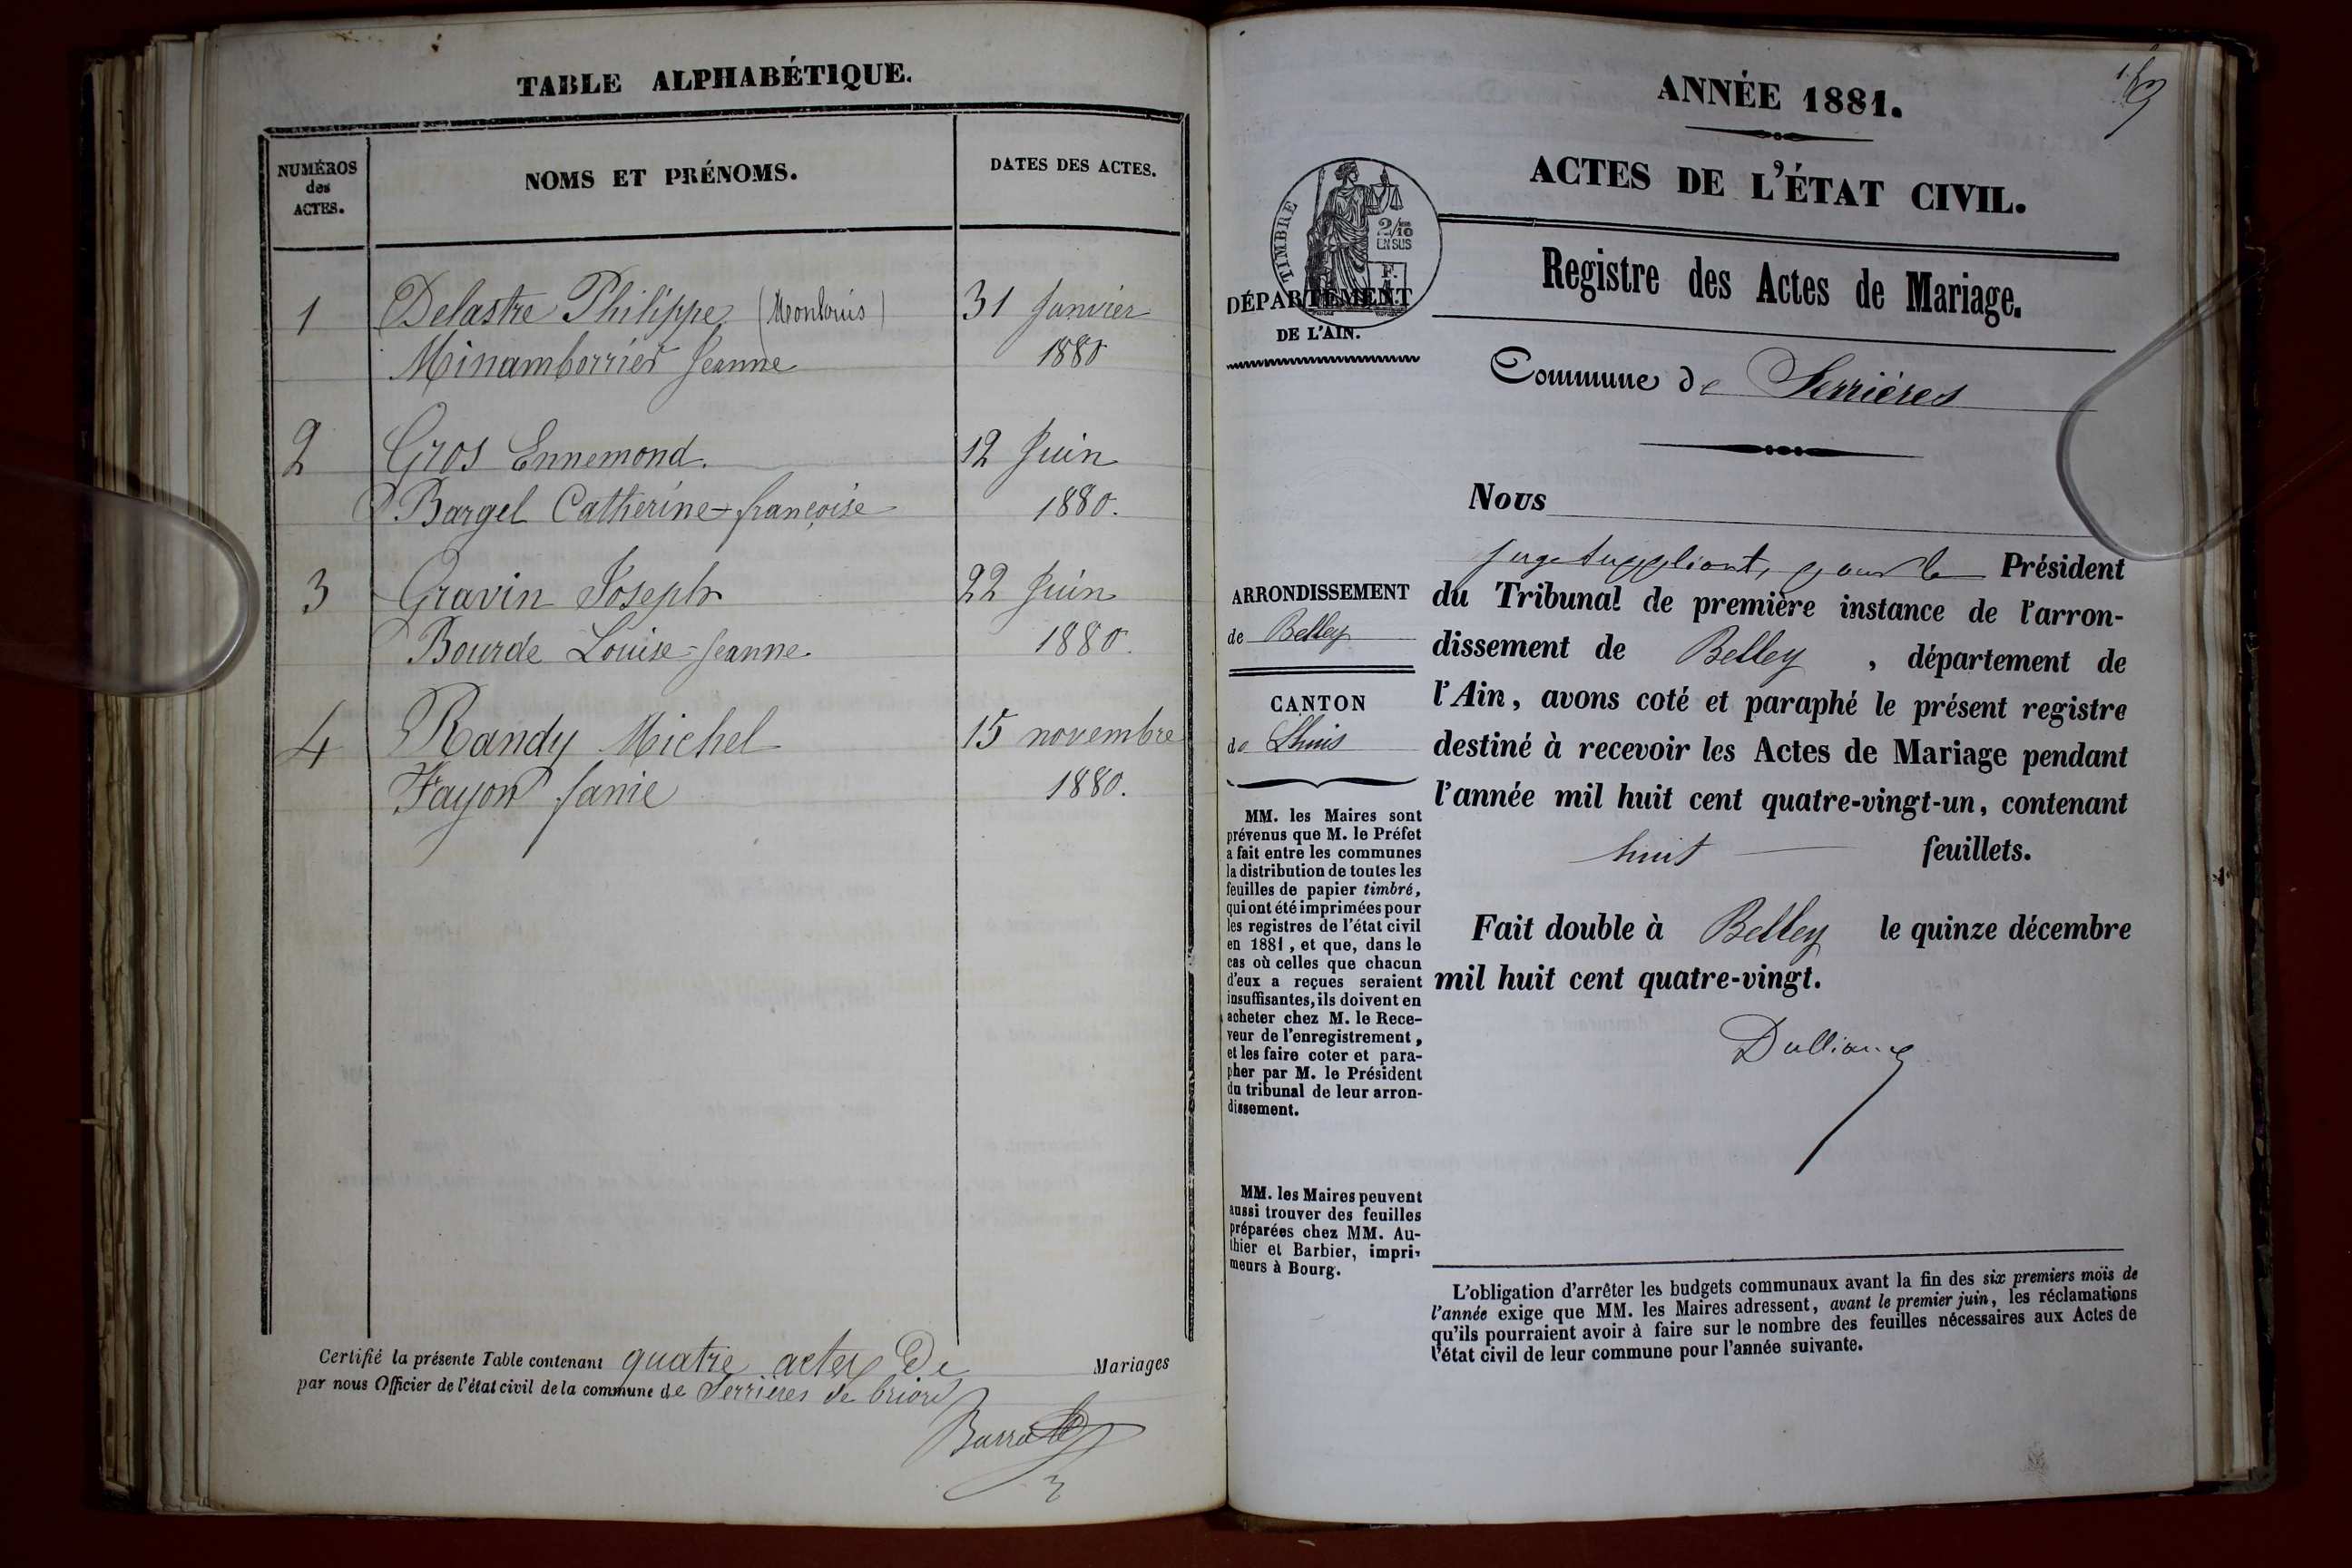 TABLE ALPHABÉTIQUE.
NUMÉROS
des
ACTES.
NOMS ET PRÉNOMS.
DATES DES ACTES.
1 Delastre Philippe (Monlouis) 31 Janvier
Jeanne 1880
2 Gros Ennemond. 12 Juin
Bargel Catherine-françoise 1880.
3 Gravin Joseph 22 Juin
Bourde Louise-Jeanne 1880.
4 Randy Michel 15 novembre
Fayon fanie 1880.
Certifié la présente Table contenant quatre actes De Mariages
par nous Officier de l'état civil de la commune de Serrières de briord
ANNÉE 1881.
ACTES DE L'ÉTAT CIVIL.
TIMBRE
2/10
EN SUS
F.
DÉPARTEMENT
DE L'AIN.
Registre des Actes de Mariage.
Commune de Serrières
Nous
Juge Suppléant, pour le Président
du Tribunal de première instance de l'arron-
dissement de Belley, département de
l'Ain, avons coté et paraphé le présent registre
destiné à recevoir les Actes de Mariage pendant
l'année mil huit cent quatre-vingt-un, contenant
huit feuillets.
Fait double à Belley le quinze décembre
mil huit cent quatre-vingt.
ARRONDISSEMENT
de Belley
CANTON
de Lhuis
MM. les Maires sont
prévenus que M. le Préfet
a fait entre les communes
la distribution de toutes les
feuilles de papier timbré,
qui ont été imprimées pour
les registres de l'état civil
en 1881, et que, dans le
cas où celles que chacun
d'eux a reçues seraient
insuffisantes, ils doivent en
acheter chez M. le Rece-
veur de l'enregistrement,
et les faire coter et para-
pher par M. le Président
du tribunal de leur arron-
dissement.
MM. les Maires peuvent
aussi trouver des feuilles
préparées chez MM. Au-
thier et Barbier, impri-
meurs à Bourg.
L'obligation d'arrêter les budgets communaux avant la fin des six premiers mois de
l'année exige que MM. les Maires adressent, avant le premier juin, les réclamations
qu'ils pourraient avoir à faire sur le nombre des feuilles nécessaires aux Actes de
l'état civil de leur commune pour l'année suivante.